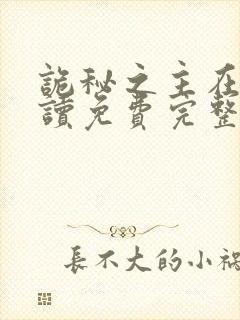 詭秘之主在
讀免費完整
長不大的小禍